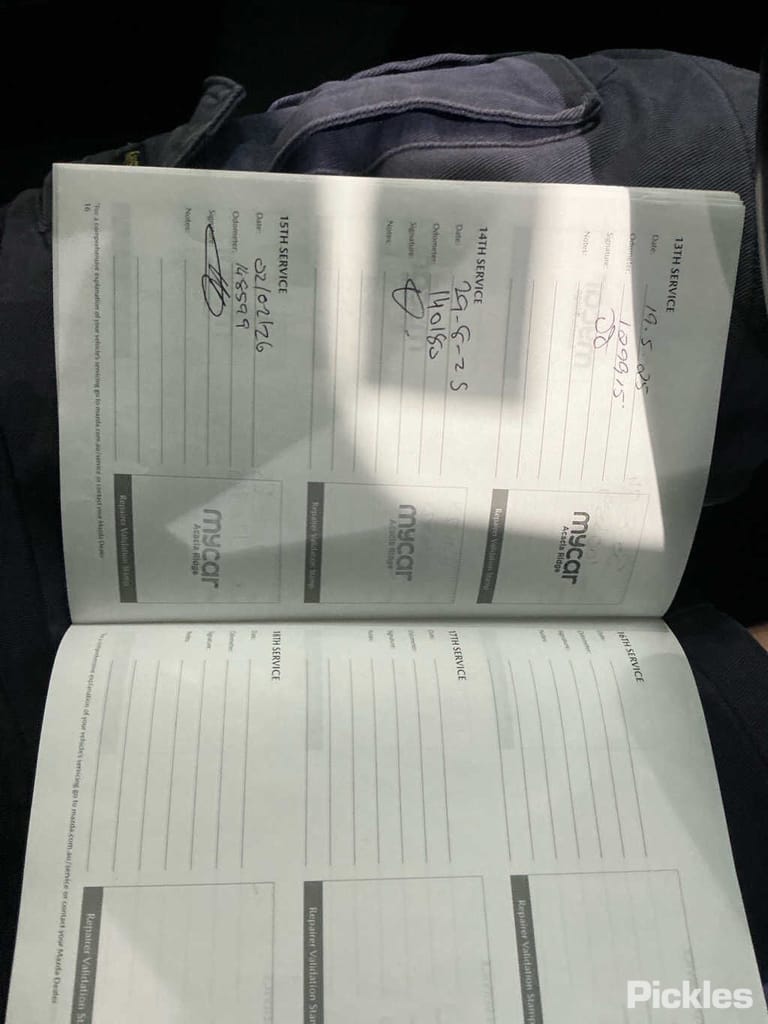 13TH SERVICE
Date:
Odometer:
Signature:
Notes:
mycar
Acacia Ridge
Repairer Validation Stamp
14TH SERVICE
Date: 29-8-25
Odometer: 140180
Signature:
Notes:
mycar
Acacia Ridge
Repairer Validation Stamp
15TH SERVICE
Date: 02/02/26
Odometer: 148599
Signature:
Notes:
mycar
Acacia Ridge
Repairer Validation Stamp
*For a comprehensive explanation of your vehicle's servicing go to mazda.com.au/service or contact your Mazda Dealer
16
16TH SERVICE
Date:
Odometer:
Signature:
Notes:
Repairer Validation Stamp
17TH SERVICE
Date:
Odometer:
Signature:
Notes:
Repairer Validation Stam
18TH SERVICE
Date:
Odometer:
Signature:
Notes:
Repairer Validation St
comprehensive explanation of your vehicle's servicing go to mazda.com.au/service or contact your Mazda Dealer
Pickles